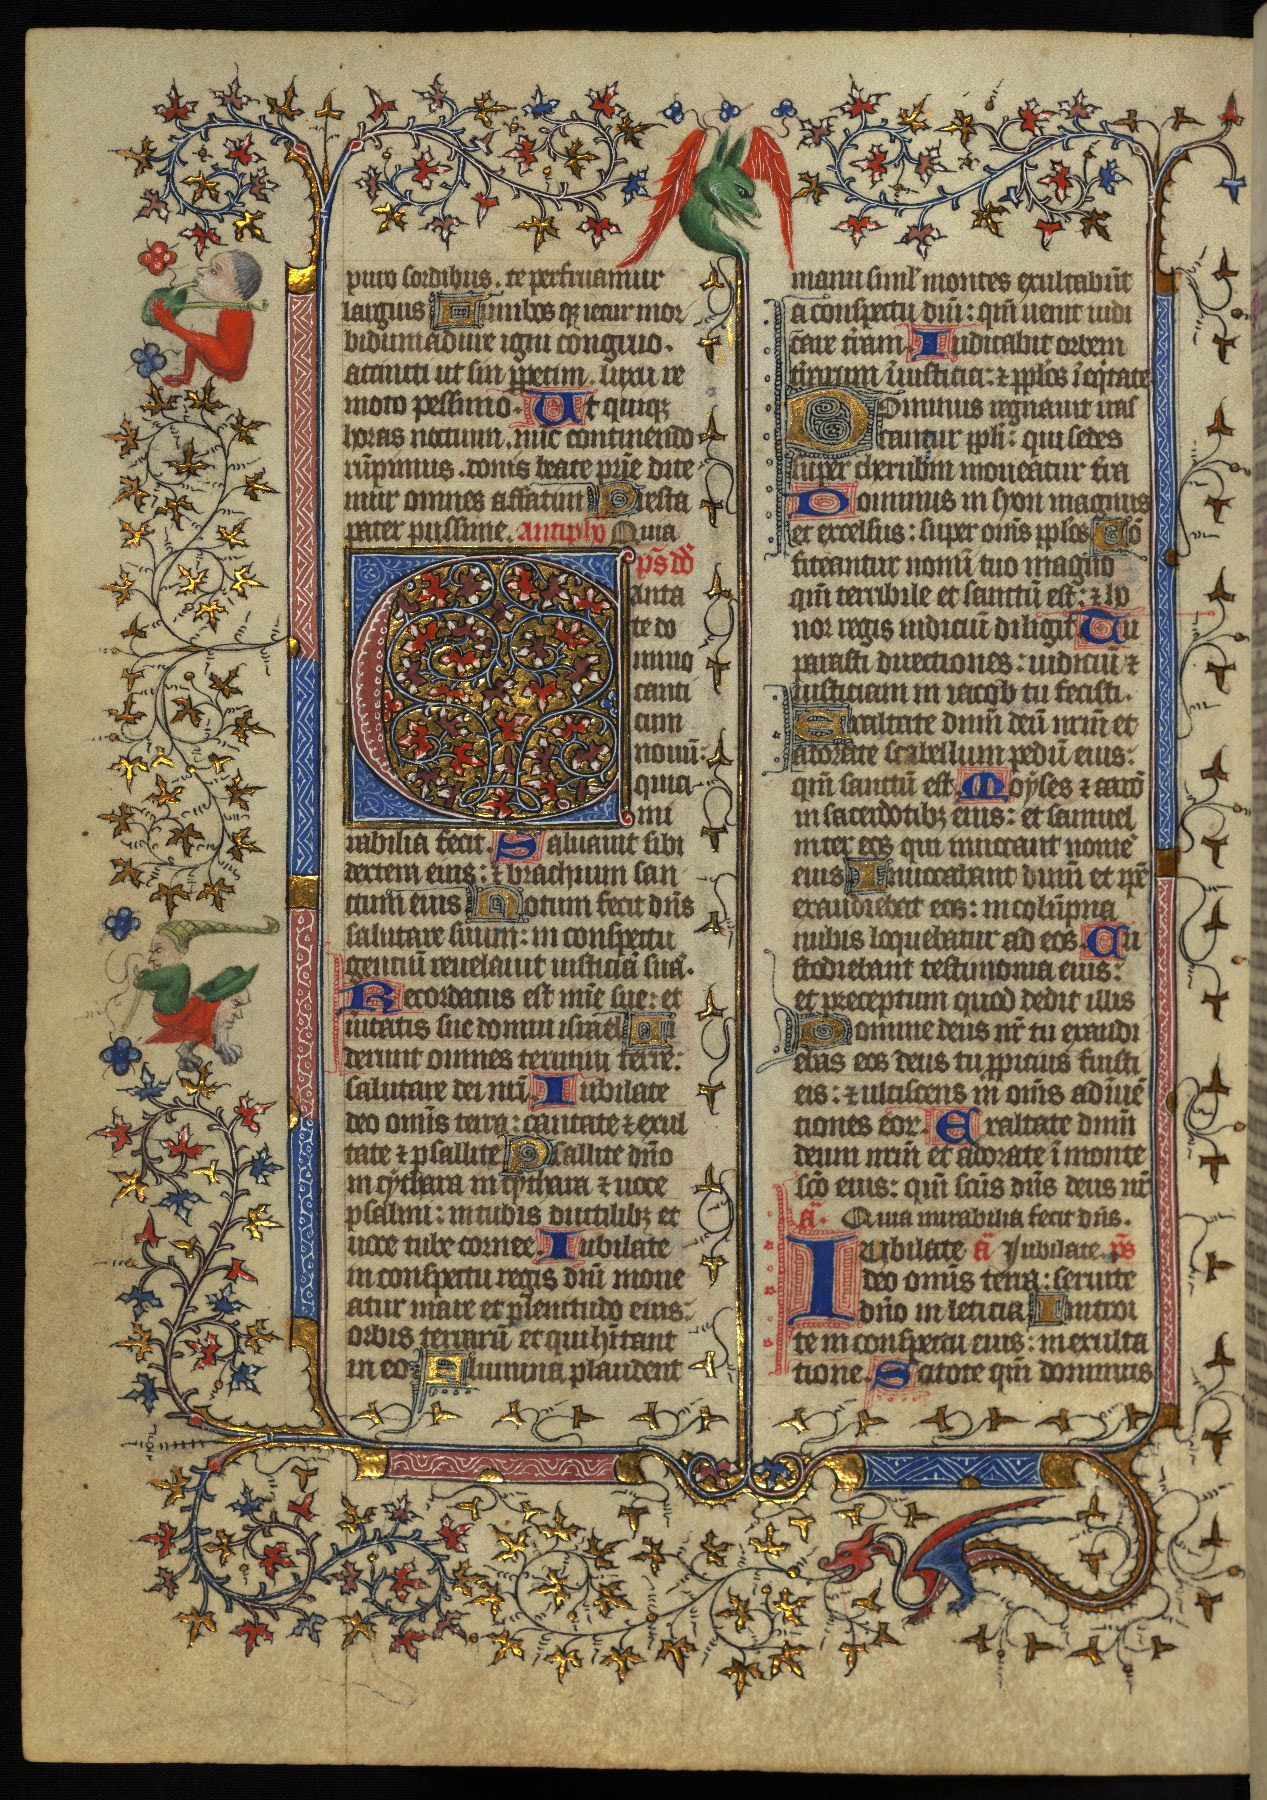 puro sordibus. te perfruamur
largius Lumbos iecur mor
bidum adure igni congruo.
accincti ut sint luxu re
moto pessimo. Ut quiq
horas noctium. nunc
rūpimus. donis beate prie dite
mur omnes affatim Presta
pater piissime. antiphō Quia
ps dd
Canta
te do
mino
canti
cum
nouū:
quia
mi
rabilia fecit. Saluauit sibi
dextera eius: & brachium san
ctum eius Notum fecit dns
salutare suum: in conspectu
gentiū reuelauit iusticiā suā.
Recordatus est mie sue: et
ueritatis sue domui israel Ui
derunt omnes termini terre:
salutare dei nri Iubilate
deo omīs terra: cantate & exul
tate & psallite Psallite dño
in cythara in cythara & uoce
psalmi: in tubis ductilibz et
uoce tube cornee. Iubilate
in conspectu regis dni moue
atur mare et plenitudo eius:
orbis terrarū et qui hītant
in eo Flumina plaudent
manu siml montes exultabūt
a conspectu dni: qm uenit iudi
care trām. Iudicabit orbem
trrarum ī iusticia: & pplos ī eqtate
Dominus regnauit iras
cantur ppli: qui sedes
super cherubim moueatur trra
Dominus in syon magnus
et excelsus: super oms pplos Cō
fiteantur nomī tuo magno
qm terribile et sanctū est: & ho
nor regis iudiciū diligit Tu
parasti directiones: iudiciū &
iusticiam in iacob tu fecisti.
Exaltate dnm deū nrm et
adorate scabellum pedū eius:
qm sanctū est. Moyses & aarō
in sacerdotibz eius: et samuel
inter eos qui inuocant nomē
eius Inuocabant dnm et ipē
exaudiebat eos: in colūpna
nubis loquebatur ad eos. Cu
stodiebant testimonia eius:
et preceptum quod dedit illis
Domine deus nr tu exaudi
ebas eos deus tu ppicius fuisti
eis: & ulciscens in oms adīuē
tiones eor. Exaltate dnm
deum nrm et adorate ī monte
sco eius: qm scus dns deus nr
a. Quia mirabilia fecit dns.
Iubilate a Jubilate. ps
deo omis terra: seruite
dño in leticia Introi
te in conspectu eius: in exulta
tione. Scitote qm dominus